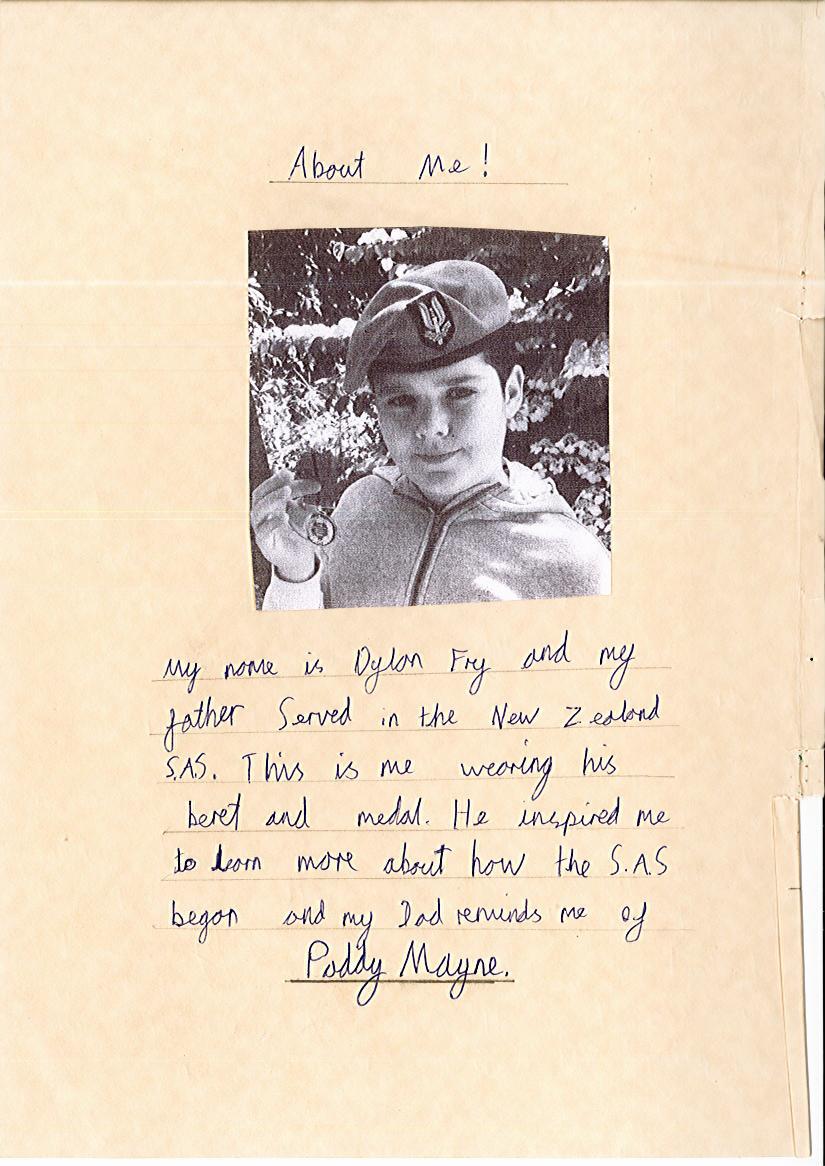 About Me!
My name is Dylan Fry and my
father Served in the New Zealand
S.A.S. This is me wearing his
beret and medal. He inspired me
to learn more about how the S.A.S
began and my Dad reminds me of
Paddy Mayne.